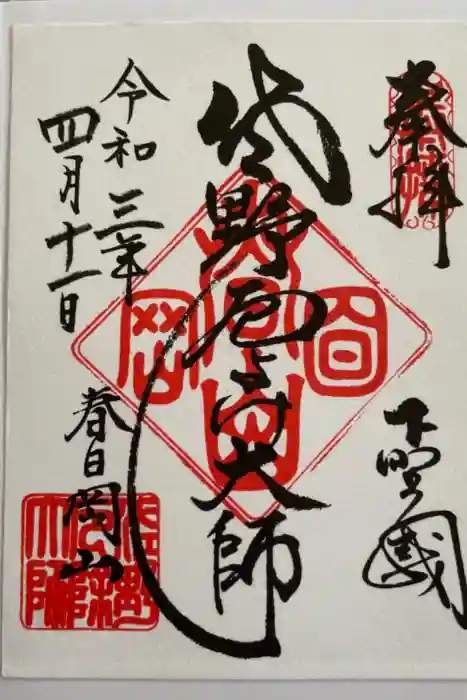 奉拝
下野國
佐野厄よけ大師
令和三年
四月十一日
春日岡山